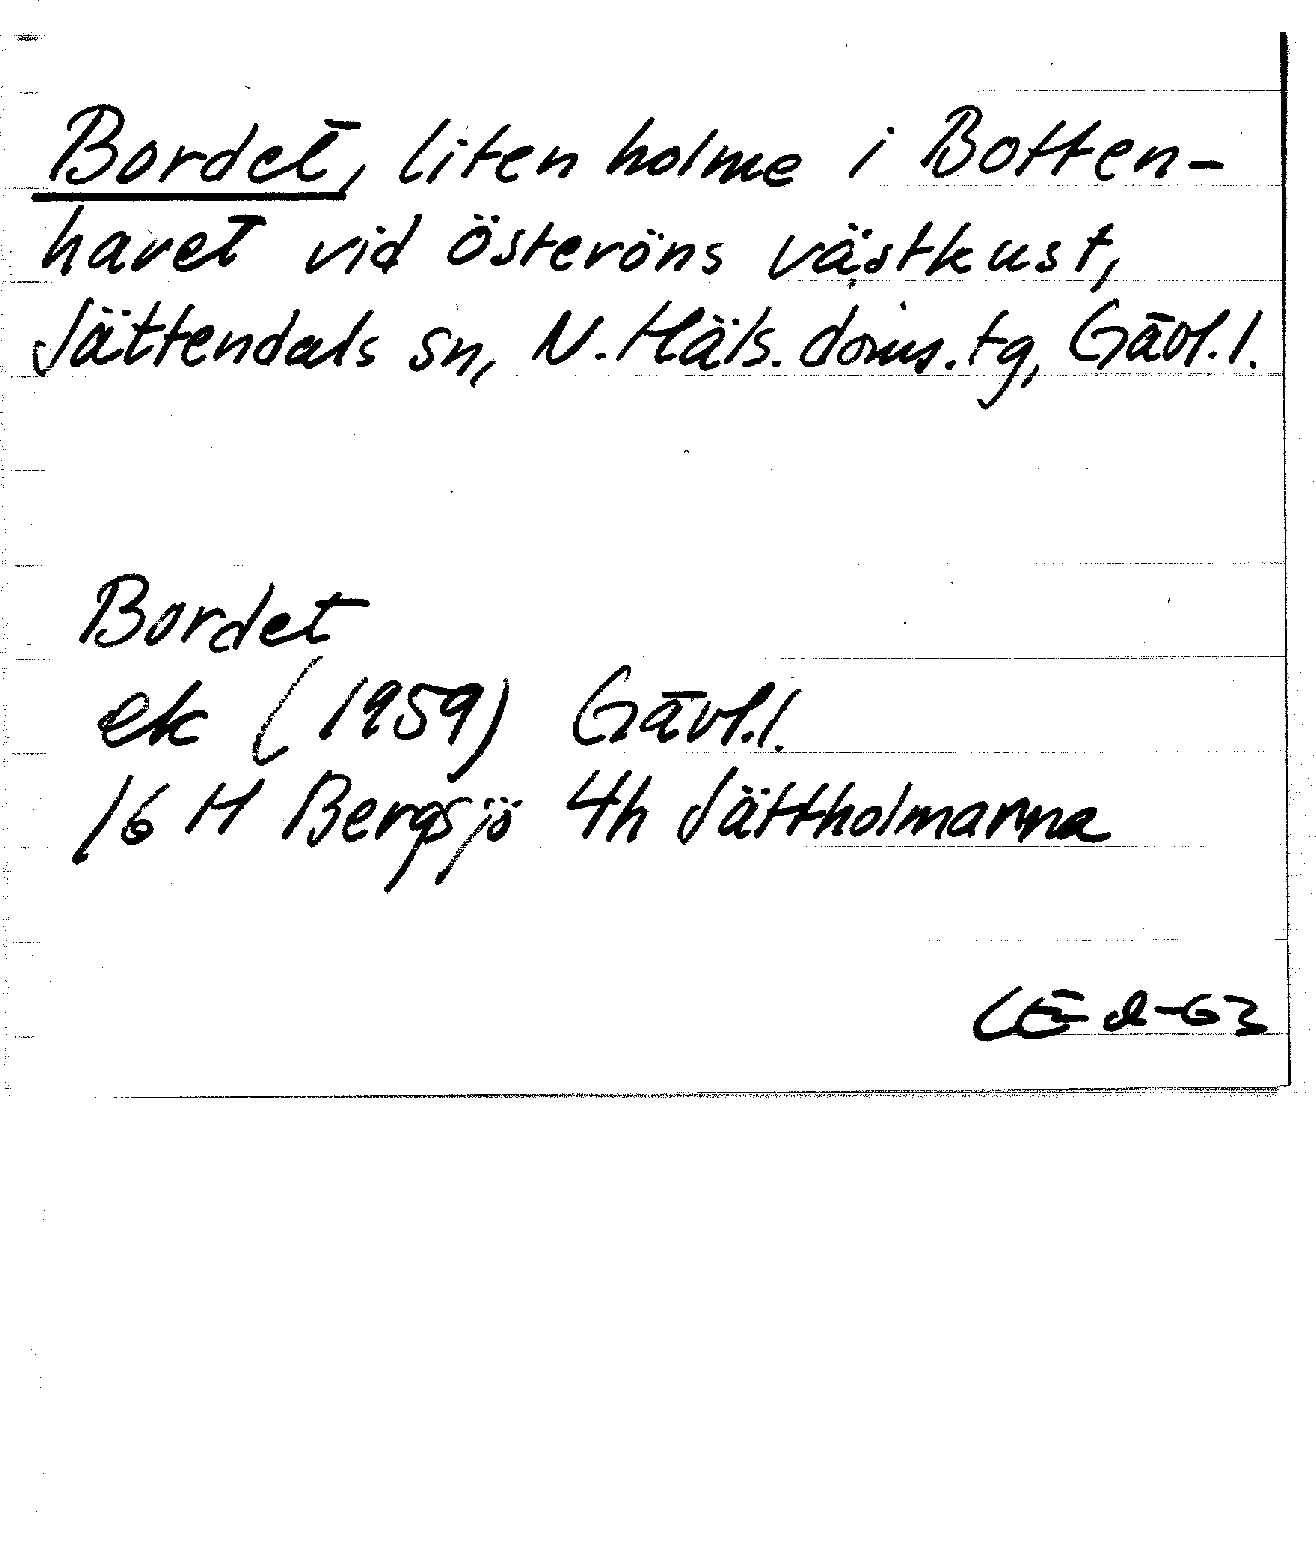 Bordet, liten holme i Botten-
havet vid Österöns västkust,
Jättendals sn, N. Häls. doms. tg, Gävl. l.
Bordet
ek (1959) Gävl. l.
16 H Bergsjö 4h Jättholmarna